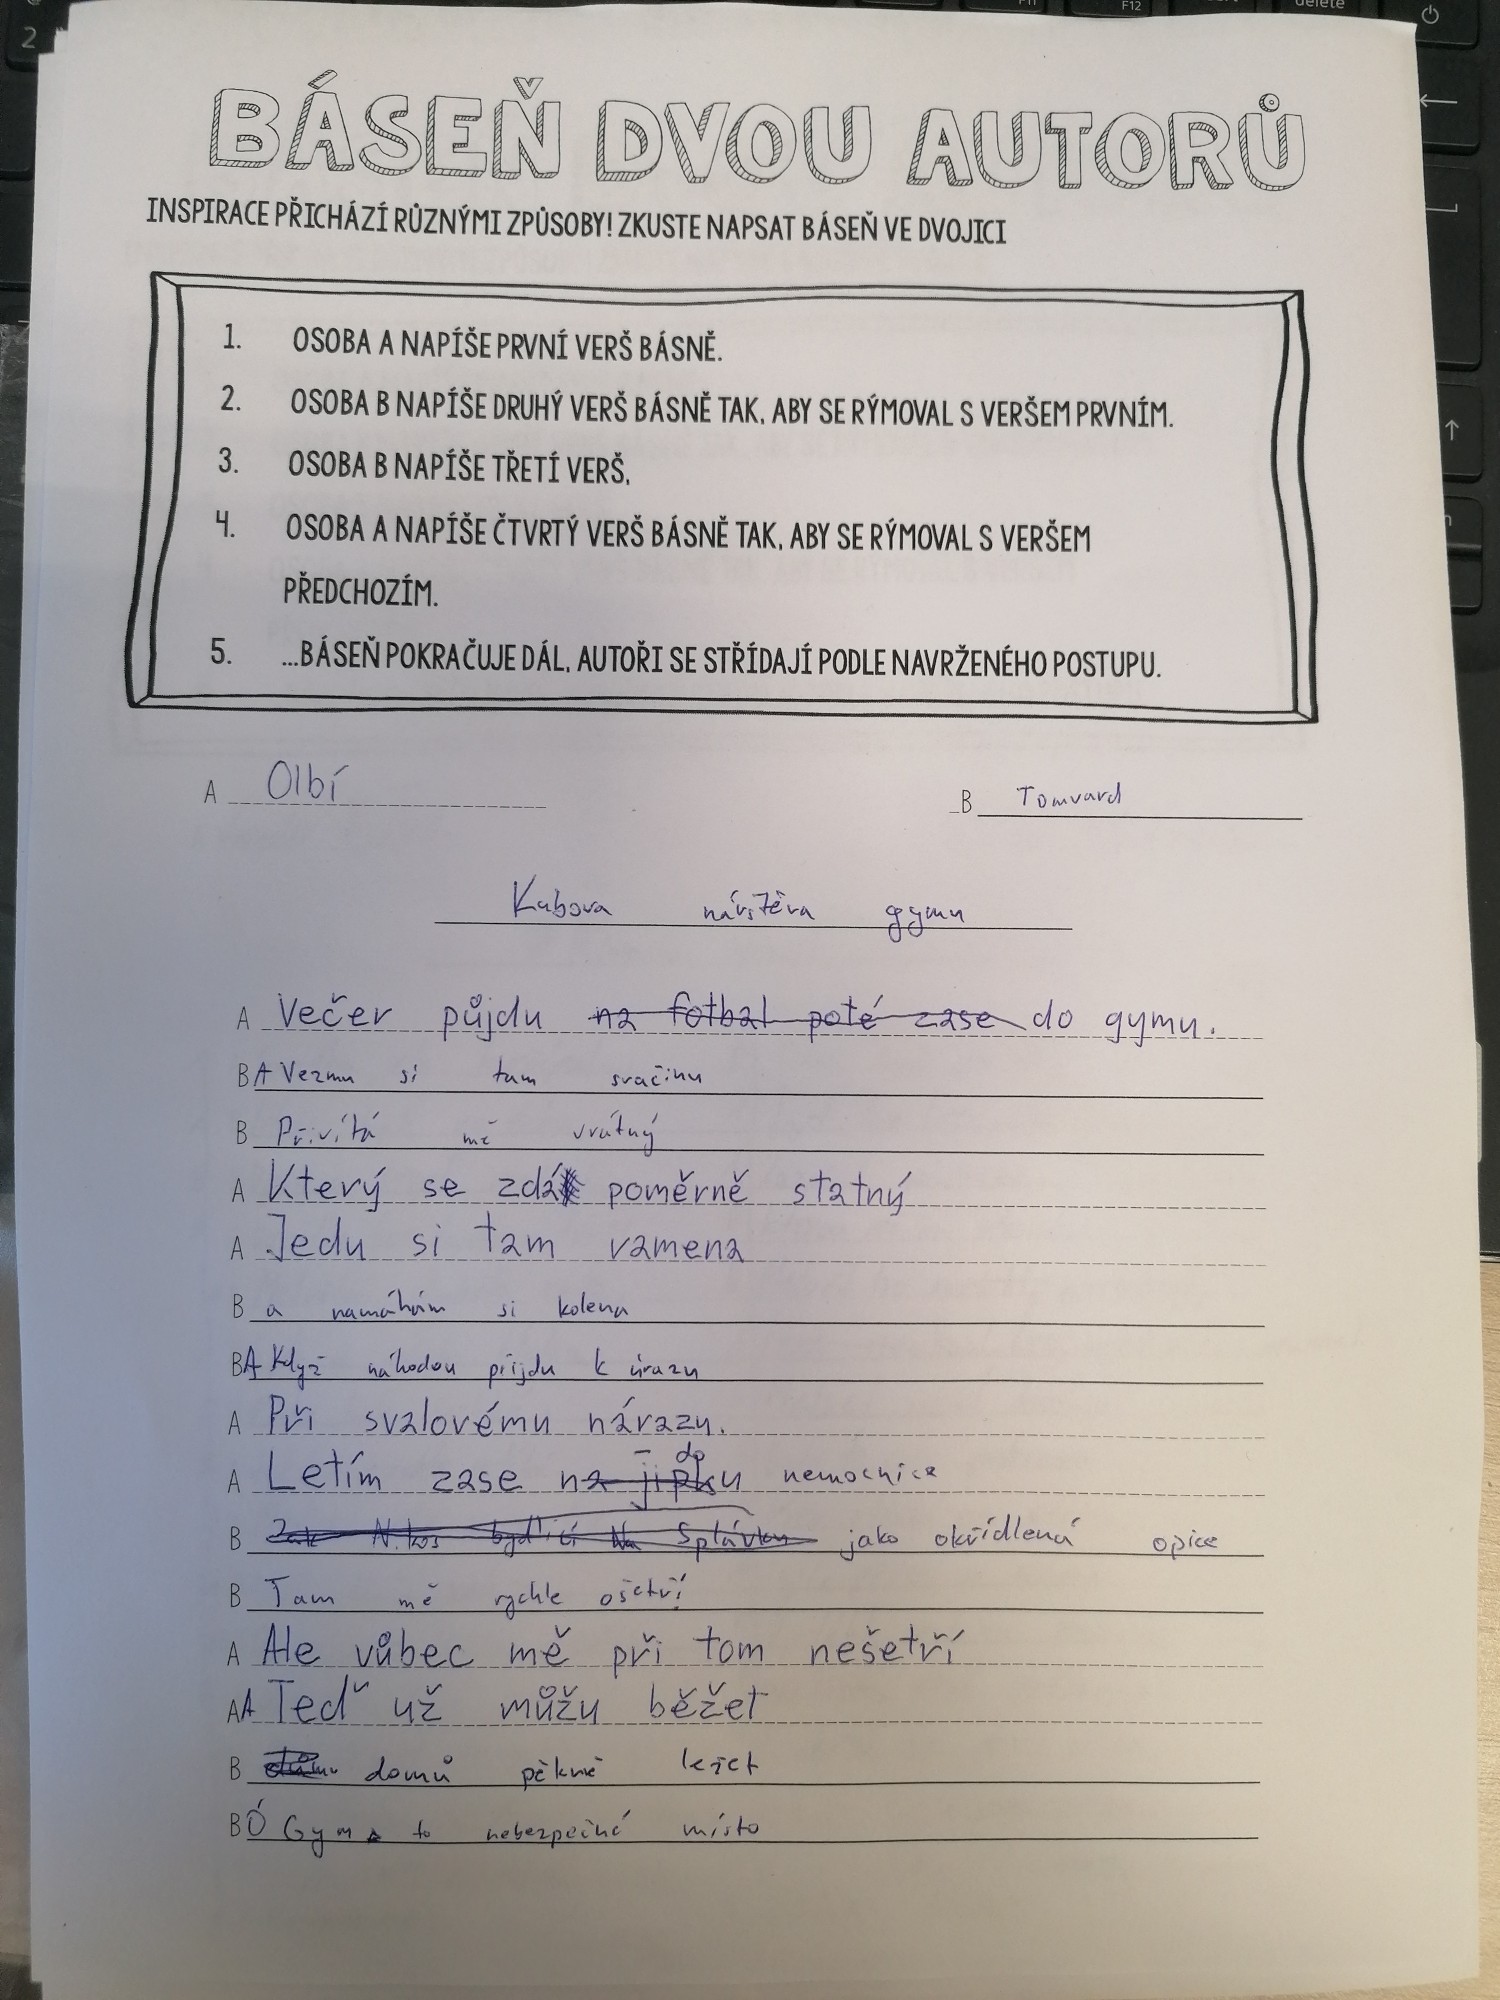 BÁSEŇ DVOU AUTORŮ
INSPIRACE PŘICHÁZÍ RŮZNÝMI ZPŮSOBY! ZKUSTE NAPSAT BÁSEŇ VE DVOJICI
1. OSOBA A NAPÍŠE PRVNÍ VERŠ BÁSNĚ.
2. OSOBA B NAPÍŠE DRUHÝ VERŠ BÁSNĚ TAK, ABY SE RÝMOVAL S VERŠEM PRVNÍM.
3. OSOBA B NAPÍŠE TŘETÍ VERŠ.
4. OSOBA A NAPÍŠE ČTVRTÝ VERŠ BÁSNĚ TAK, ABY SE RÝMOVAL S VERŠEM
PŘEDCHOZÍM.
5. ...BÁSEŇ POKRAČUJE DÁL, AUTOŘI SE STŘÍDAJÍ PODLE NAVRŽENÉHO POSTUPU.
A Olbí
B Tomvard
Kubova návštěva gymu
A Večer půjdu na fotbal poté zase do gymu.
B A Vezmu si tam svačinu
B Přivítá mě vrátný
A Který se zdá poměrně statný
A Jedu si tam ramena
B a namáhám si kolena
B A Když náhodou přijdu k úrazu
A Při svalovému nárazu.
A Letím zase na jipku do nemocnice
B jako okřídlená opice
B Tam mě rychle ošetří
A Ale vůbec mě při tom nešetří
A A Teď už můžu běžet
B domů pěkně ležet
B Ó Gym to nebezpečné místo
2
F11
F12
delete